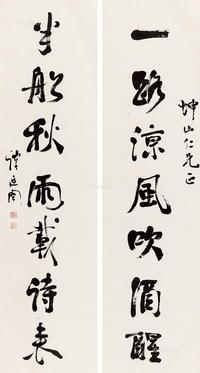 坤山仁兄正
一路涼風吹酒醒
半船秋雨載詩来
譚延闓